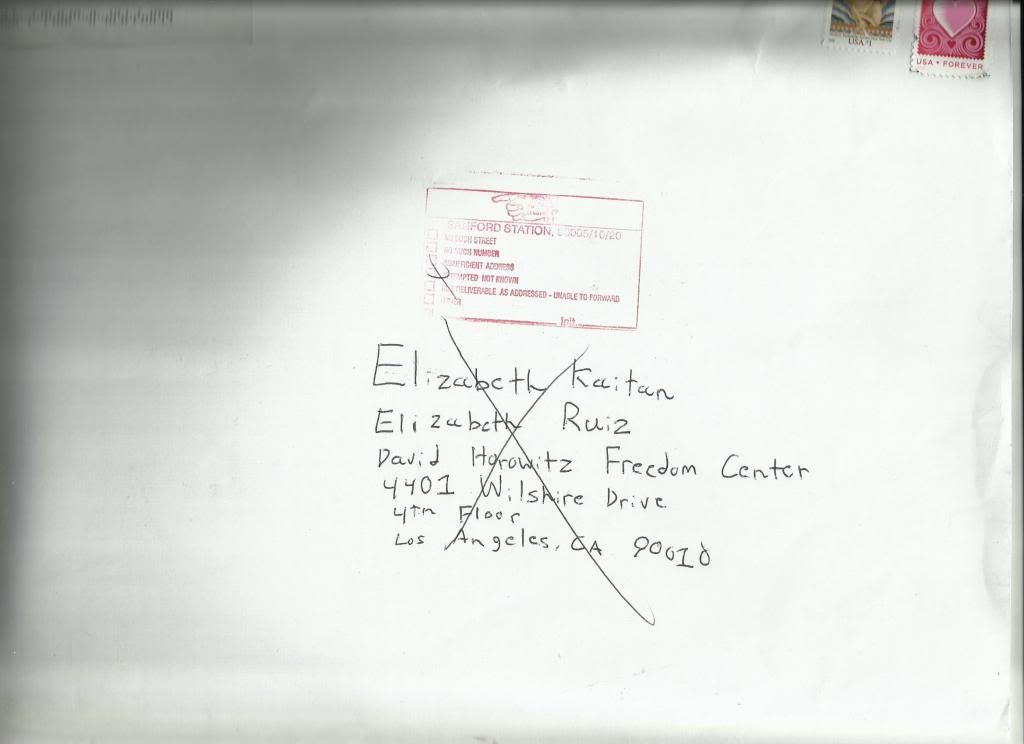 USA $1
USA • FOREVER
SANFORD STATION, 90005/10/20
NO SUCH STREET
NO SUCH NUMBER
INSUFFICIENT ADDRESS
ATTEMPTED NOT KNOWN
NOT DELIVERABLE AS ADDRESSED - UNABLE TO FORWARD
OTHER
Init.
Elizabeth Kaitan
Elizabeth Ruiz
David Horowitz Freedom Center
4401 Wilshire Drive
4th Floor
Los Angeles, CA 90010